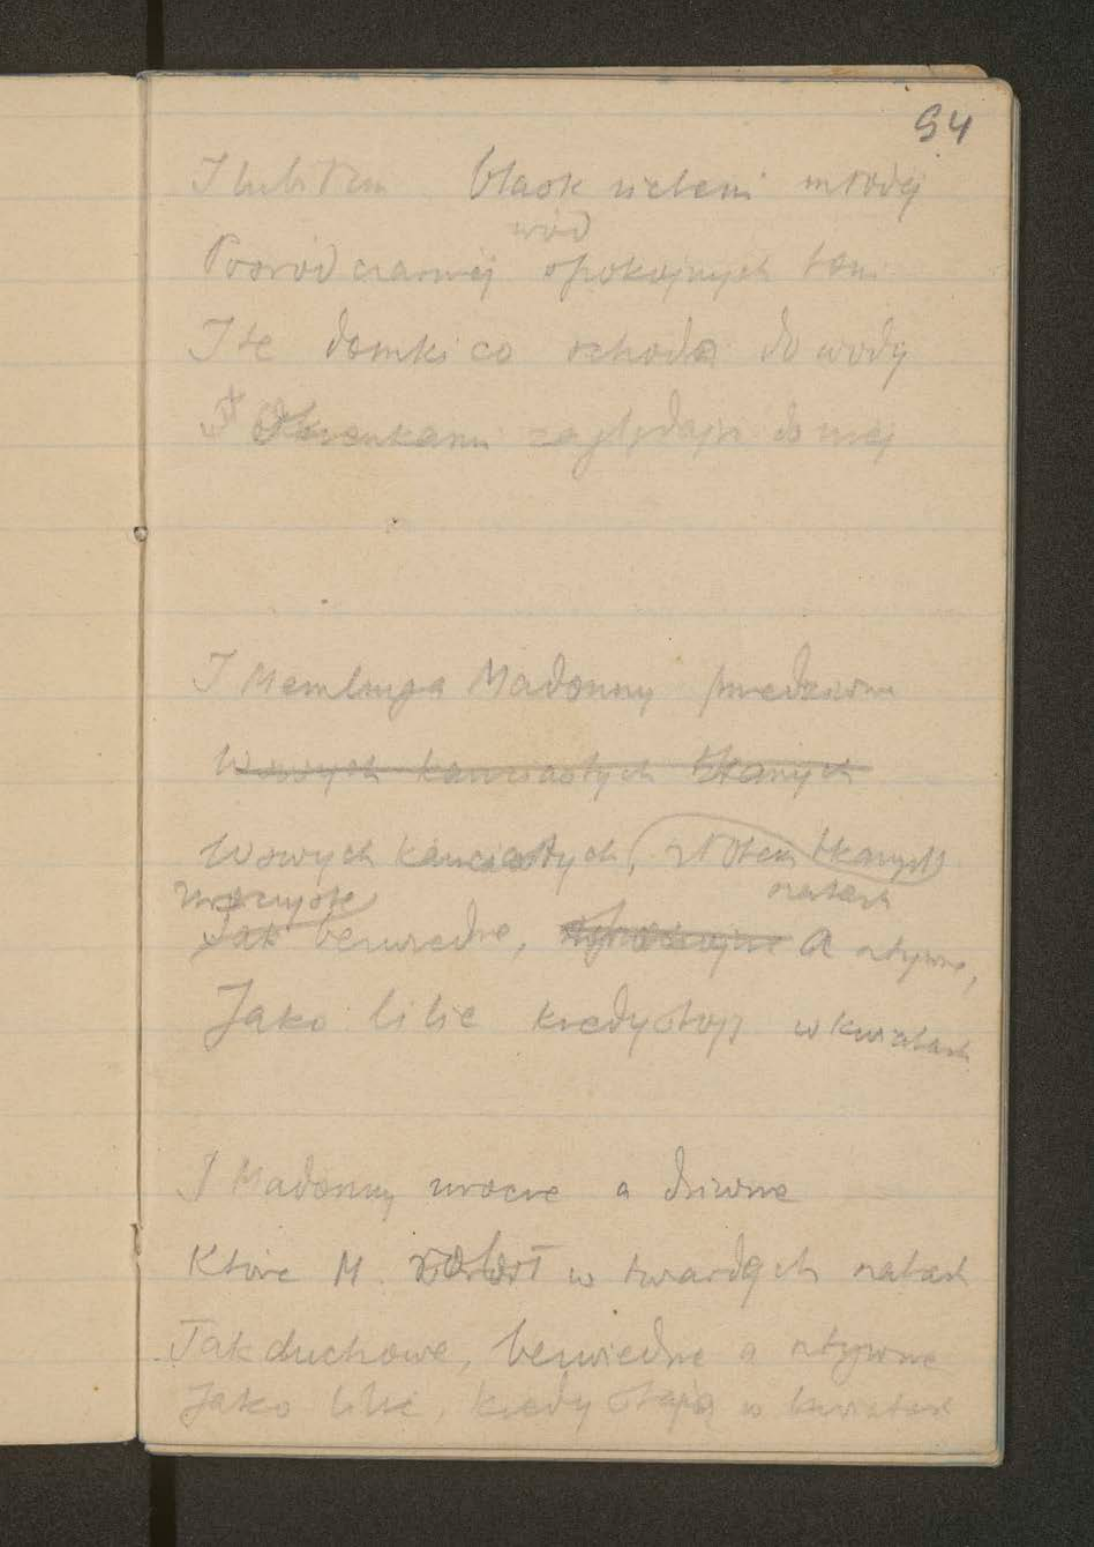 94
I lubiłem blask zieleni młodej
wód
Pośród czarnej spokojnych toni
I te domki co schodzą do wody
I Okienkami zaglądają do niej
I Memlinga Madonny przedziwne
W swych kanciastych tkanych
W swych kanciastych, złotem tkanych
uroczyste szatach
Jak bezwiedne, a sztywne,
Jako lilie kiedy stoją w kwiatach
I Madonny urocze a dziwne
Które M. w twardych szatach
Tak duchowe, bezwiedne a sztywne
Jako lilie, kiedy stają w kwiatach